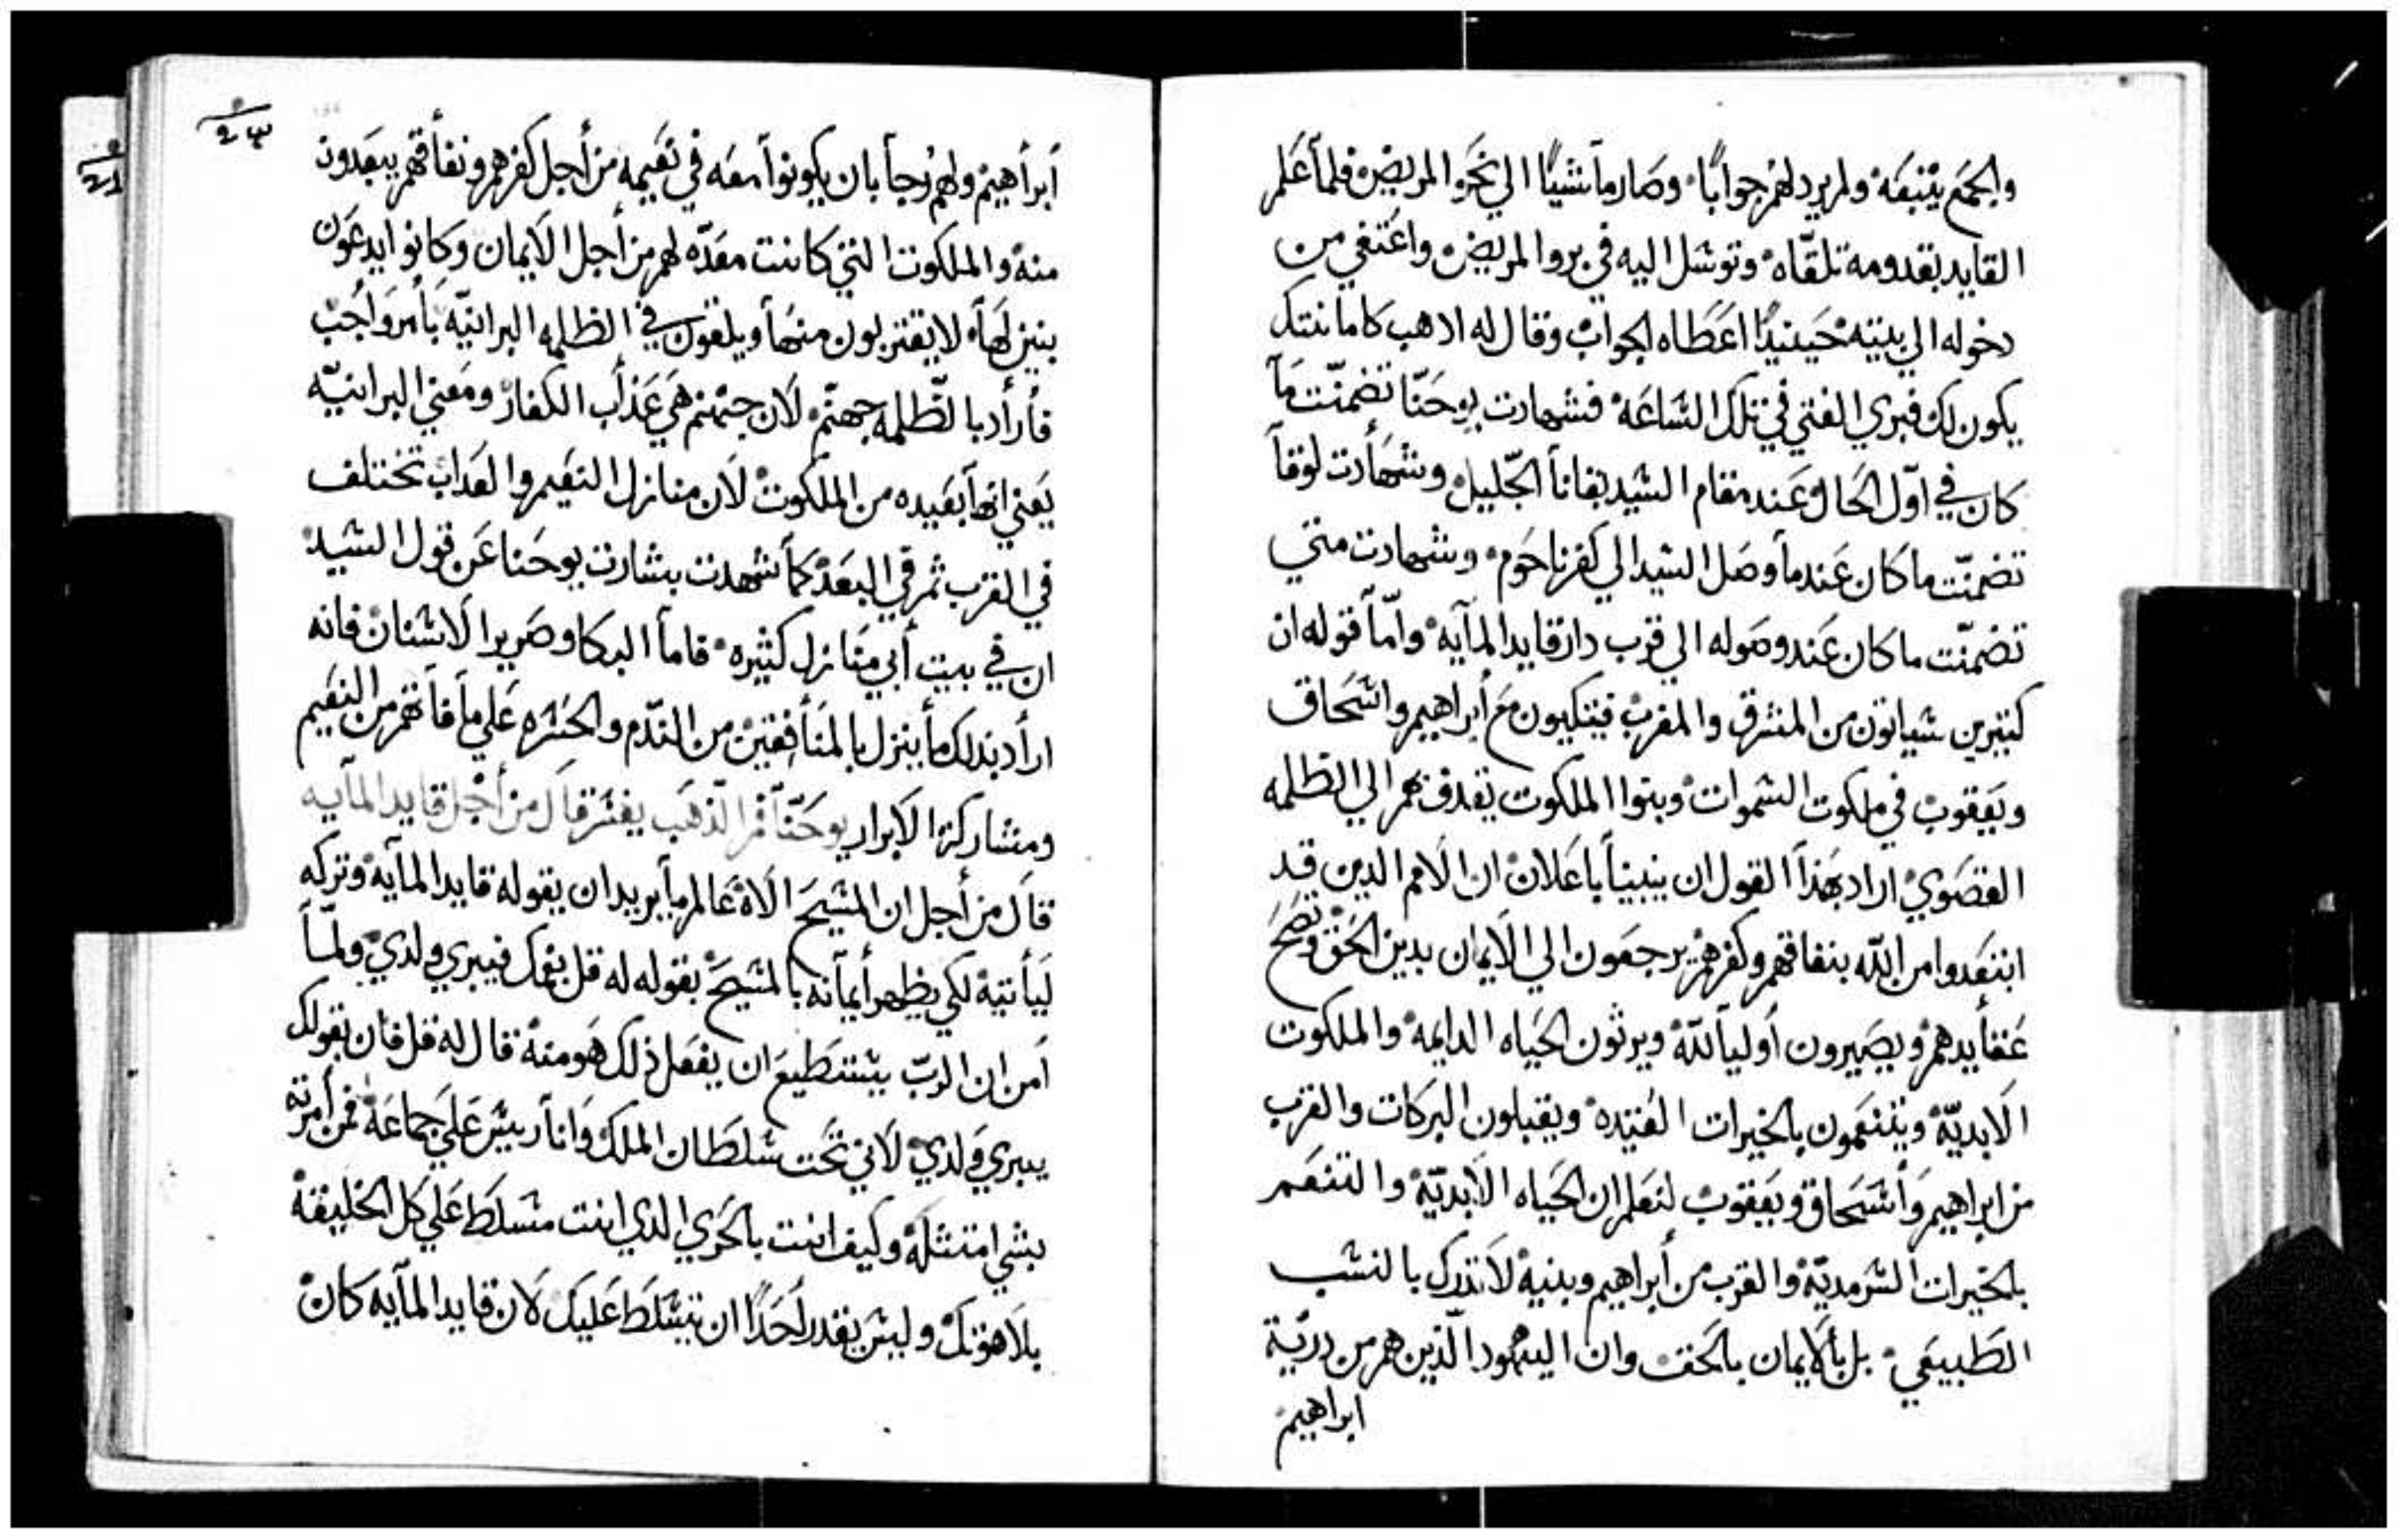 والجمع يتبعه ولم يرد لهم جوابًا وصار ماشيًا الي نحو المريض فلما علم
القايد بقدومه تلقّاه وتوسل اليه في برو المريض واعتفي من
دخوله الي بيته حينيدًا اعطاه الجواب وقال له ادهب كامانتك
يكون لك فبري الفتي في تلك الساعه فشهادت يوحنّا تضمنّت ما
كان في اوّل الحال وعند مقام السيد بقانا الجليل وشهادت لوقا
تضمنّت ما كان عندما وصل السيد الي كفرناحوم وشهادت متي
تضمنّت ما كان عند وصوله الي قرب دار قايد المآيه وامّا قوله ان
كتيرين سياتون من المشرق والمغرب فيتكيون مع أبراهيم واسحاق
ويعقوب في ملكوت السموات وبنوا الملكوت يقدف بهم الي الظلمه
القصوي اراد بهذا القول ان يبينا باعلان ان الامم الدين قد
ابتعدوا من اللّه بنفاقهم وكفرهم يرجعون الي الايمان بدين الحق وتصح
عقأيدهم ويصيرون أوليا للّه ويرثون الحياه الدايمه والملكوت
الابديّه ويتنعمون بالخيرات العتيده ويقبلون البركات والقرب
من ابراهيم وأسحاق ويعقوب لنعلم ان الحياه الابديّه والتنعم
بالخيرات السرمديّه والقرب من أبراهيم وبنيه لا تدرك بالنسب
الطبيعي بل بألايمان بالحق وان اليهود الّذين هم من دريّة
ابراهيم
أبرأهيم ولهم رجا بان يكونوا معه في نعيمه من أجل كفرهم ونفأقهم يبعدون
منه والملكوت التي كانت معدّه لهم من أجل الايمان وكانوا يدعون
بنين لها لا يقتربون منها ويلقون في الظلمه البرانيّه بأمر واجب
فأرأد بالظّلمه جهنّم لان جهنم هي عذاب الكفار ومعني البرانيّه
يعني انها بعيده من الملكوت لان منازل النعيم والعداب تختلف
في القرب ثم في البعد كما شهدت بشارت يوحنا عن قول السيد
ان في بيت أبي منازل كثيره فاما البكا وصرير الاسنان فانه
ارأد بدلك ما ينزل بالمنأفقين من النّدم والحسره علي ما فاتهم من النعيم
ومشاركة الابرار يوحنّا فم الذهب يفسر قال من أجل قايد المآيه
قال من أجل ان المسيح الاه عالم ما يريد ان يقوله قايد المآيه وتركه
ليأتيه لكي يظهر أيمانه بالمسيح بقوله له قل بفمك فيبري ولدي ولمّا
أمن ان الربّ يستطيع ان يفعل ذلك هو منه قال له قل فان بقولك
يبري ولدي لاني تحت سلطان الملك وانا رييس علي جماعة فمن أمرته
بشي امتثله وكيف انت بالحري الدي انت مسلط علي كل الخليقة
بلاهوتك وليس يقدر أحدًا ان يتسلط عليك لان قايد المآيه كان